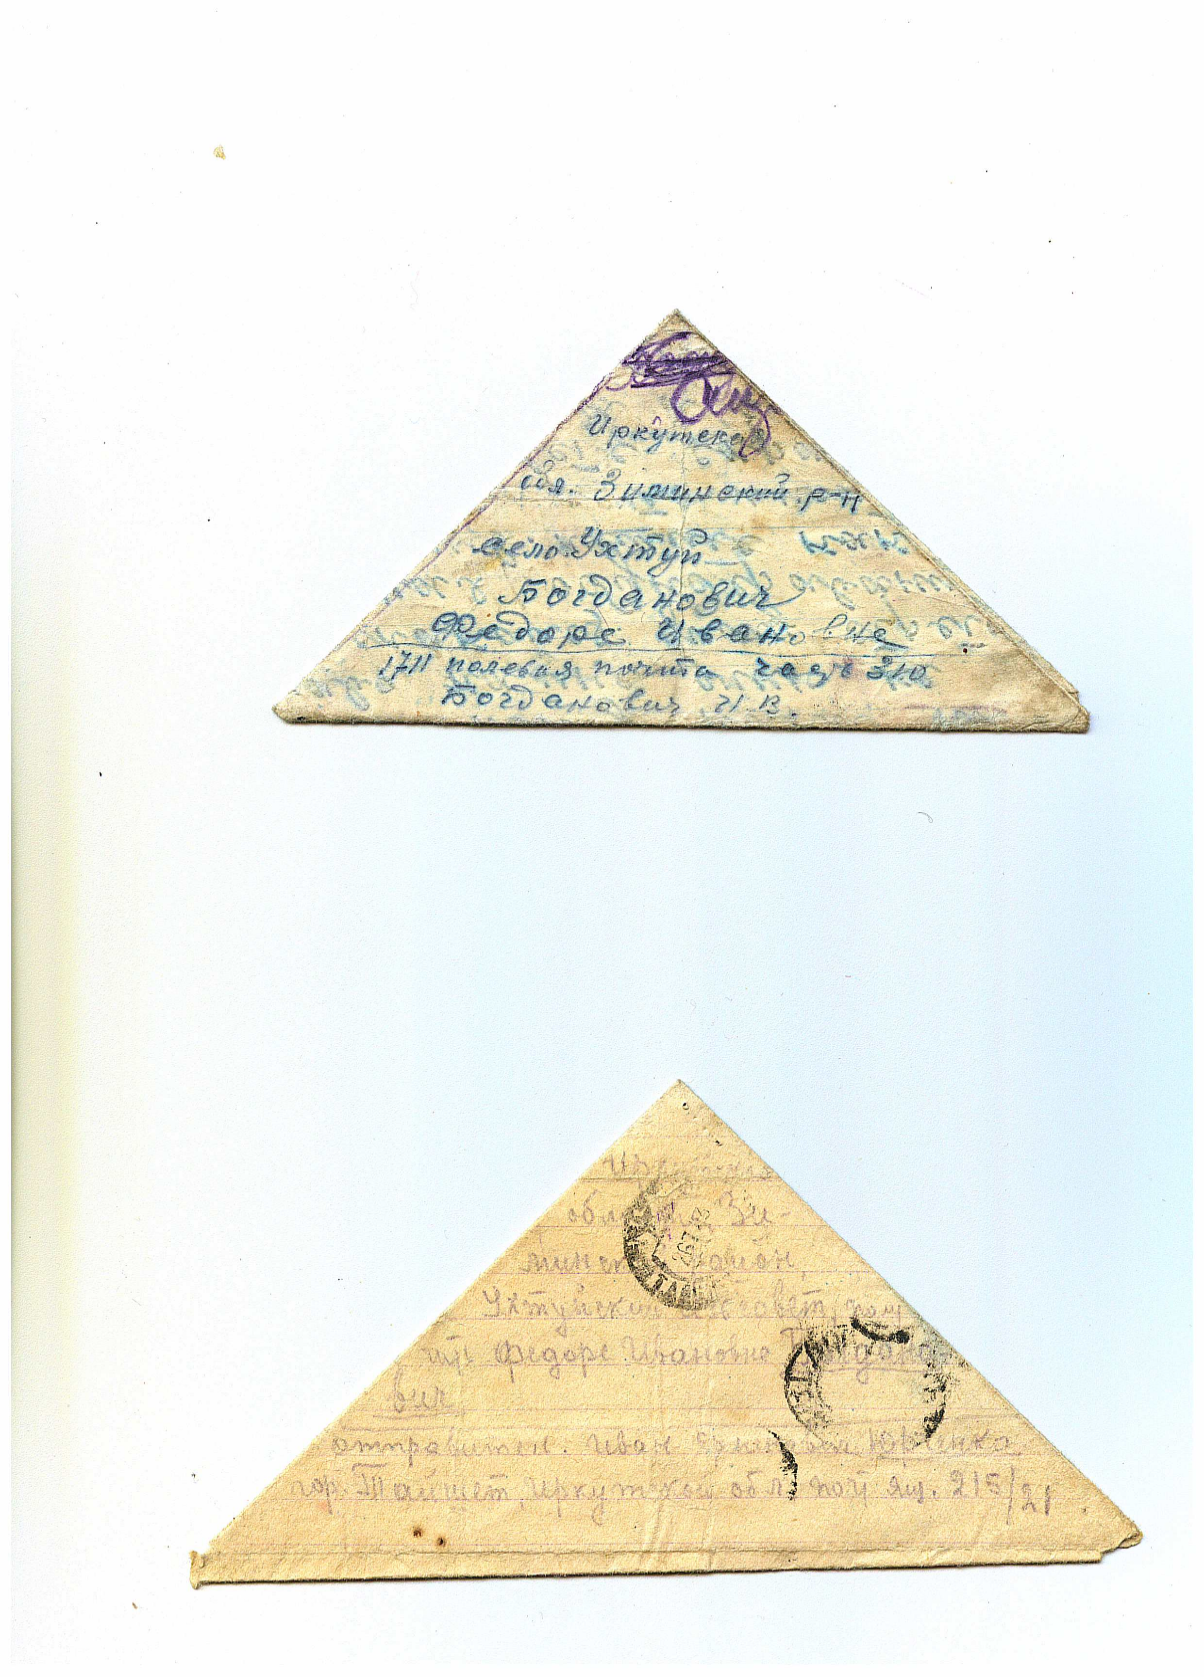 Иркутска
обл. Зиминский р-н
село Ухтуй
Богданович
Федоре Ивановне
1711 полевая почта часть 310
Богданович И.В.
области Зи-
район,
Ухтуйский
Федоре Ивановне Богдано-
вич
отправител. Иван Юрченко
гор. Тайшет, Иркутской обл. поч ящ. 215/21